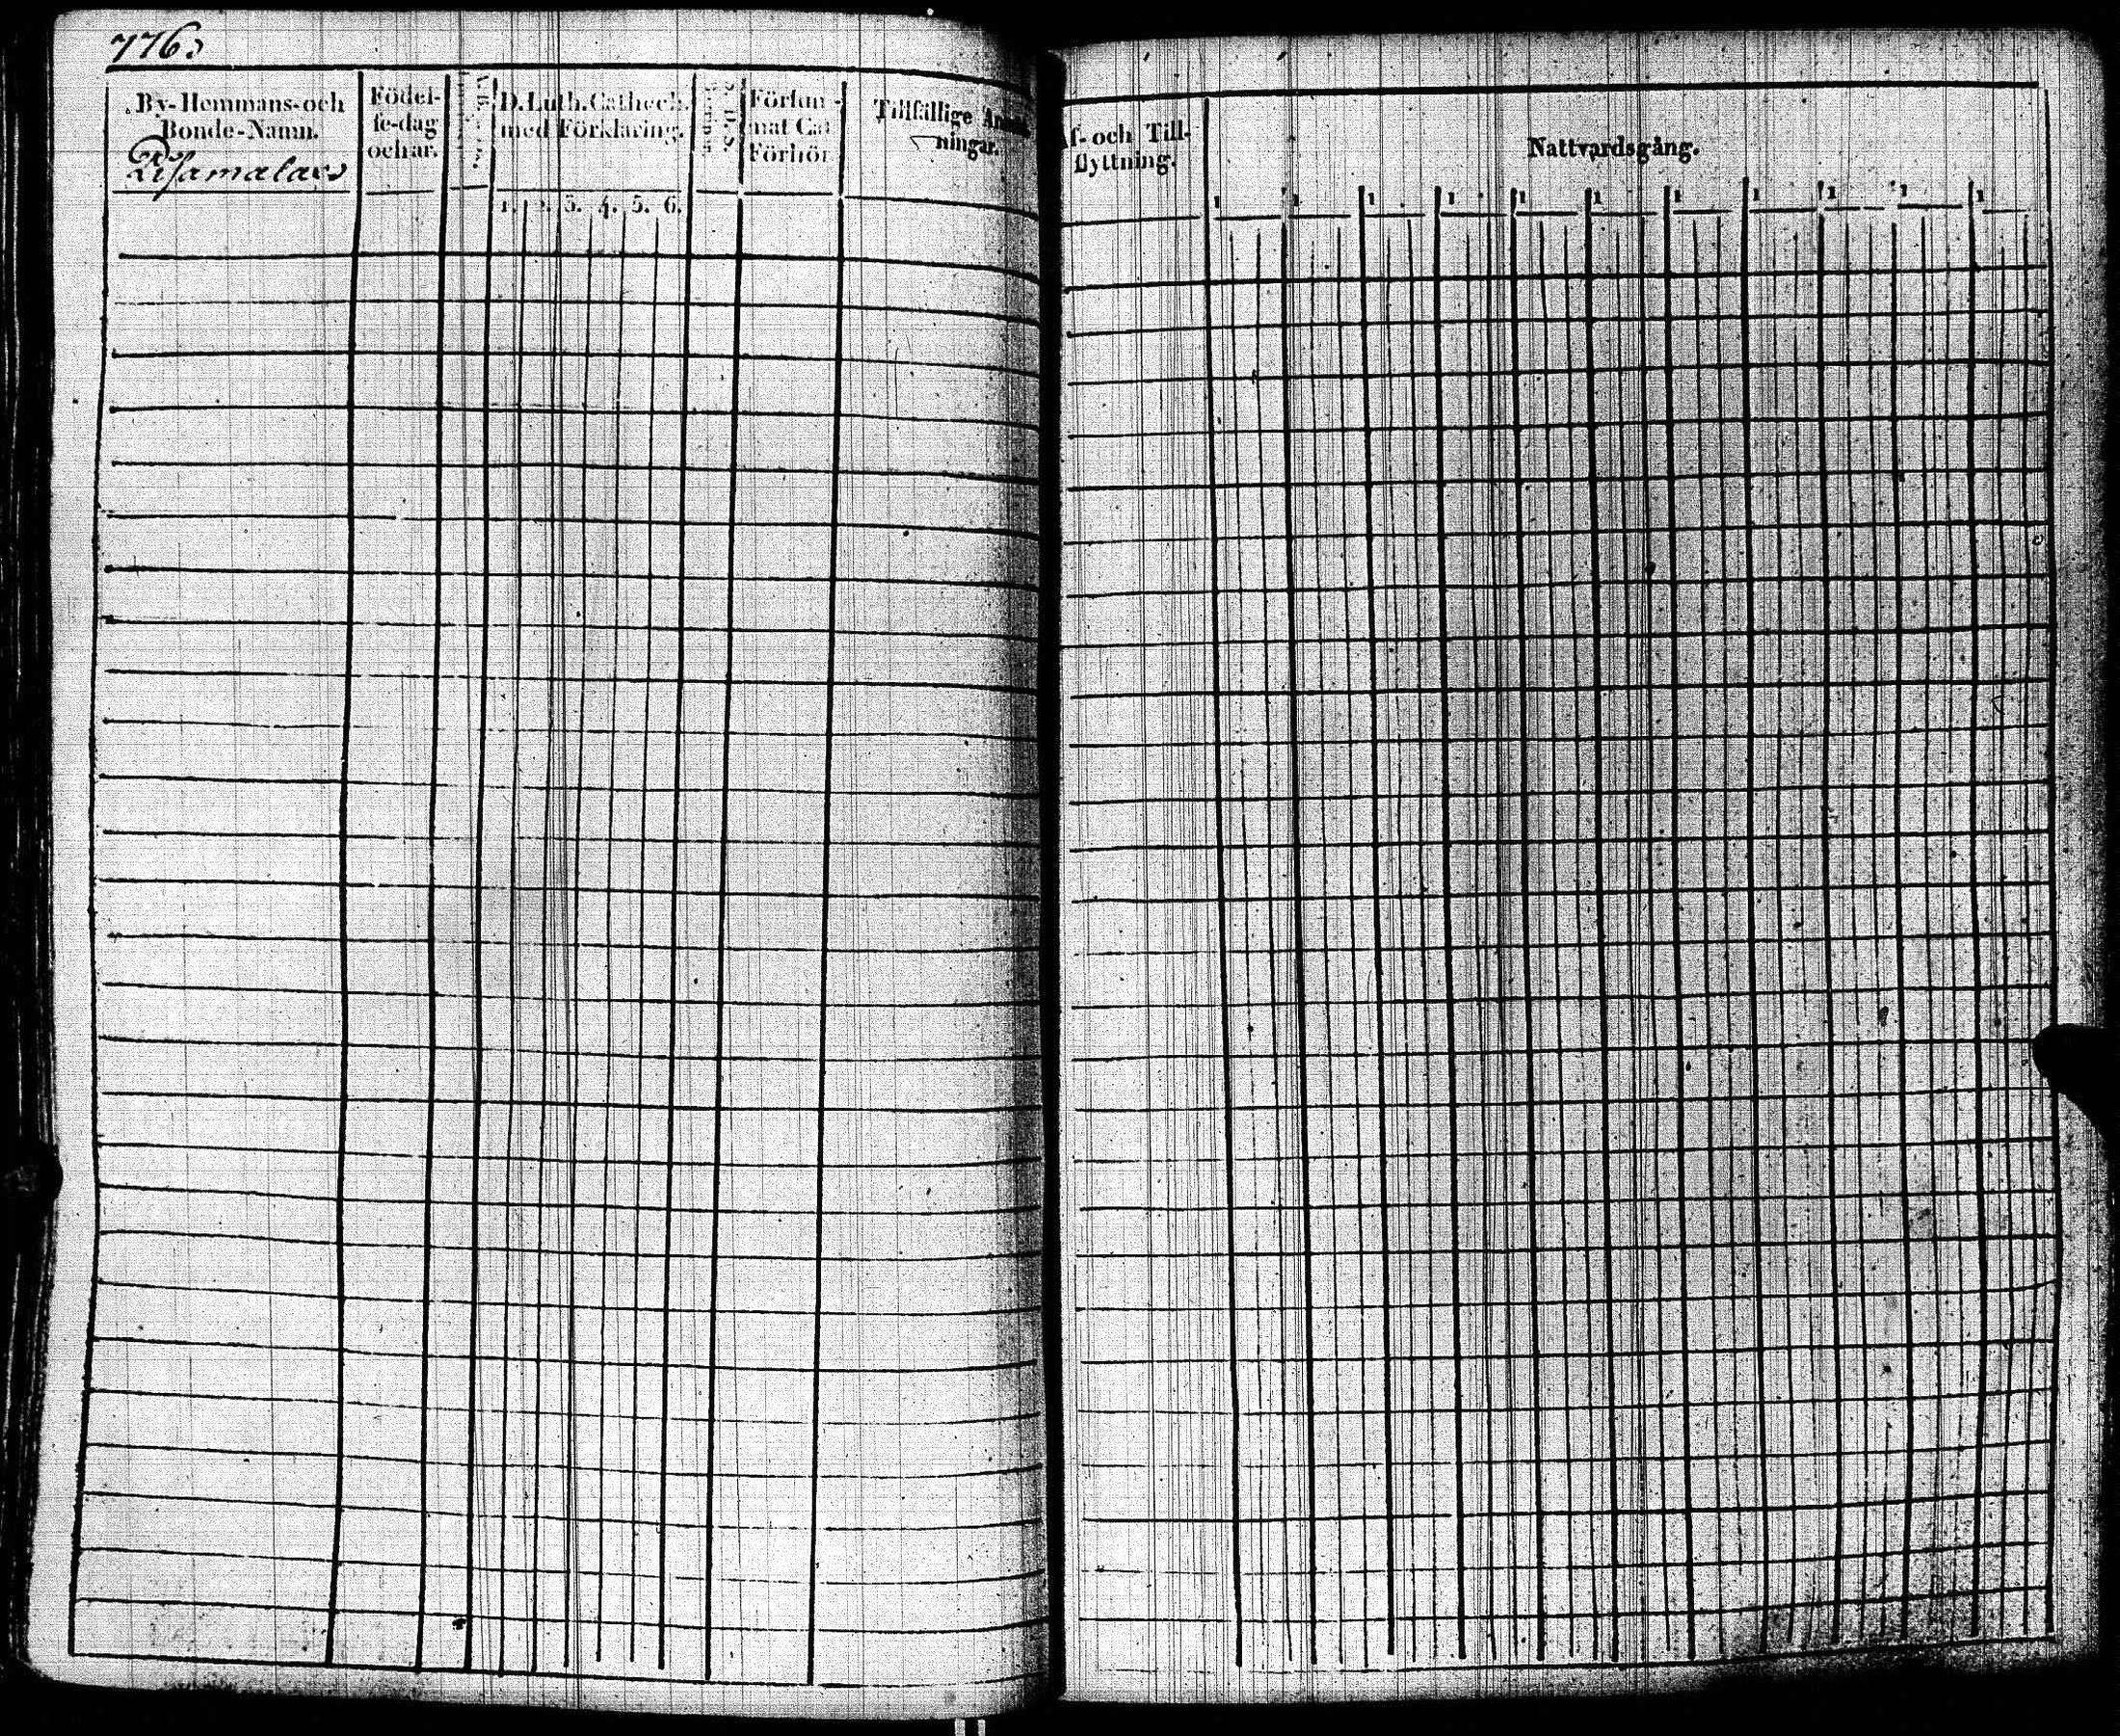 776.
By-Hemmans-och
Bonde-Namn.
Risamalax
Födel-
se-dag
och år.
D. Luth. Cathech.
med Förklaring.
1. 2. 3. 4. 5. 6.
Förſum-
mat Cat
Förhör
Tillfällige Anmärk-
ningar.
Af- och Till-
flyttning.
Nattvardsgång.
1 1 1 1 1 1 1 1 1 1 1